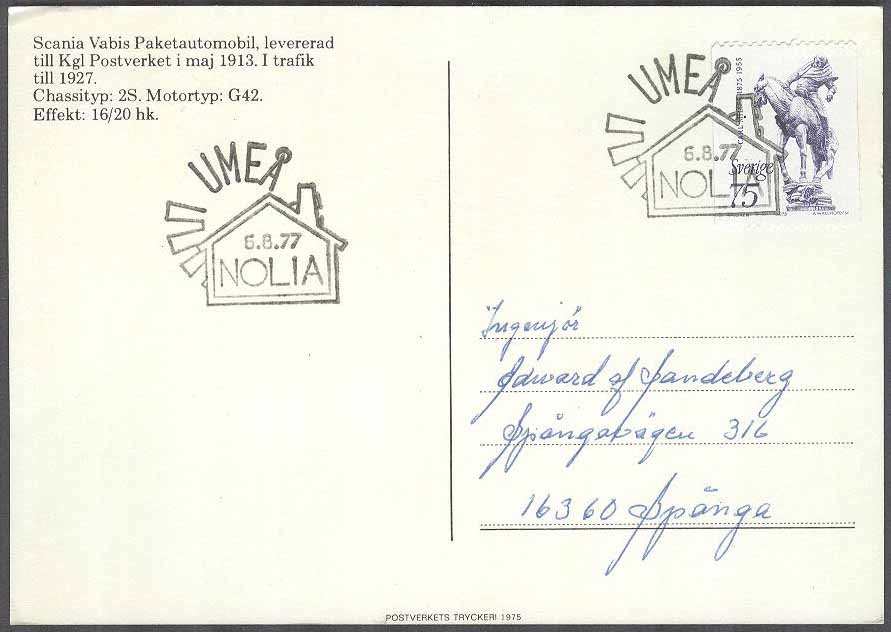 Scania Vabis Paketautomobil, levererad
till Kgl Postverket i maj 1913. I trafik
till 1927.
Chassityp: 2S. Motortyp: G42.
Effekt: 16/20 hk.
UMEÅ
6.8.77
NOLIA
UMEÅ
6.8.77
NOLIA
1875 1955
Sverige
75
Ingenjör
Edward af Sandeberg
Spångavägen 316
163 60 Spånga
POSTVERKETS TRYCKERI 1975